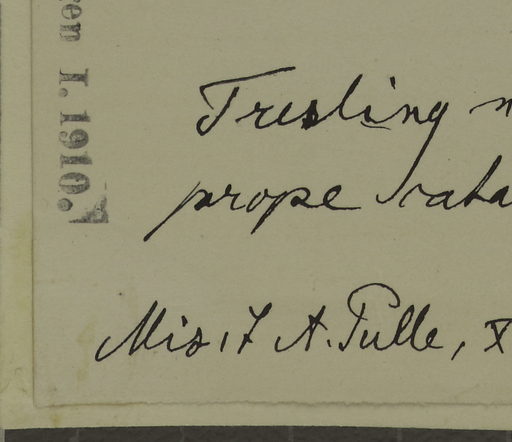 en I. 1910.
Tresling
prope cata
Mis. A. Pulle, X